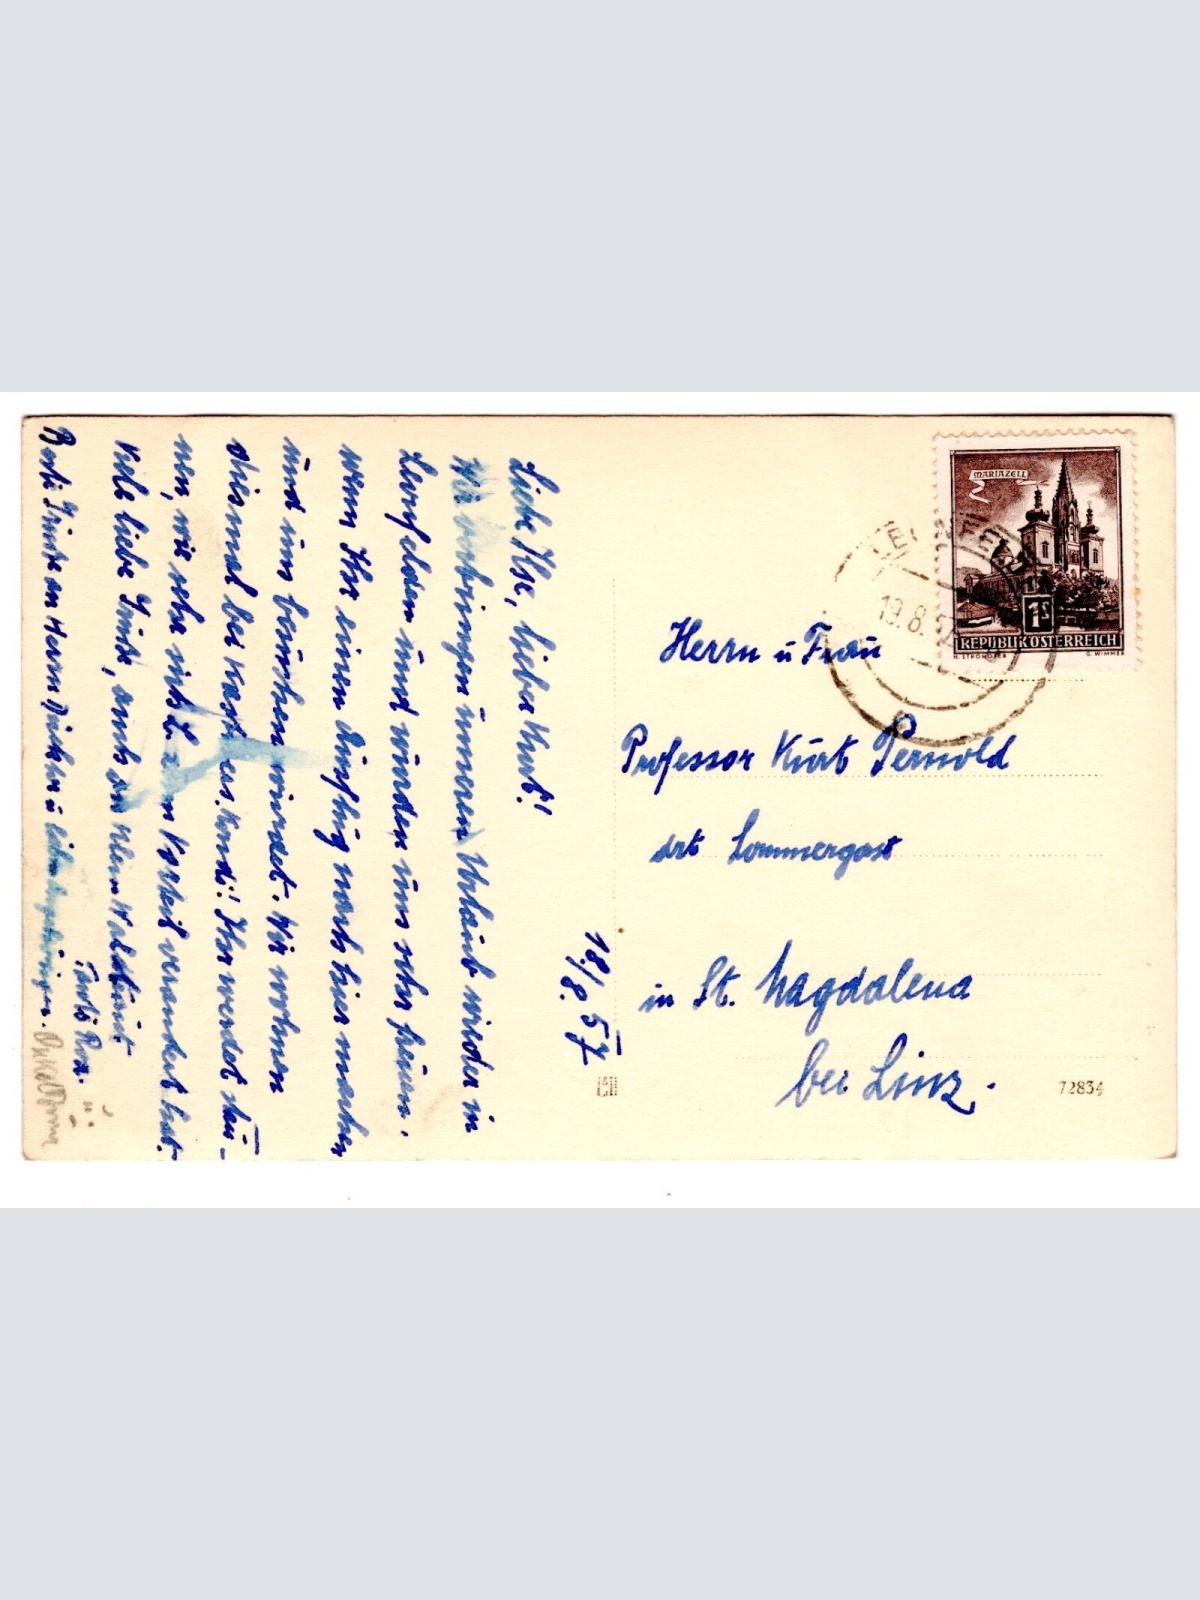 18./8. 57
Liebe Ilse, lieber Kurt!
Wir verbringen unseren Urlaub wieder in
Leonfelden und würden uns sehr freuen,
wenn Ihr einen Ausflug nach hier machen
und uns besuchen würdet. Wir wohnen
diesmal bei Kastner, Kondi! Ihr werdet stau-
nen, wie sehr sich L. zum Vorteil verändert hat.
Viele liebe Grüße, auch an
Tante Rosa.
Beste Grüße an Herrn u
MARIAZELL
1S
REPUBLIK ÖSTERREICH
H. STROHOFER G. WIMMER
19.8.57
Herrn u Frau
Professor Kurt Pernold
drt Sommergast
in St. Magdalena
bei Linz.
72834